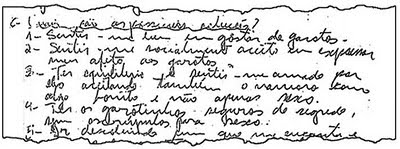 são as possíveis soluções?
1- Sentir-me bem em gostar de garotos.
2- Sentir-me socialmente aceito em expressar
meu afeto aos garotos
3- Ter equilíbrio e sentir-me amado por
eles aceitando também o namoro como
algo bonito e não apenas sexo.
4- Ter os garotinhos seguros de segredo,
sem para sexo.
5- Ser em que me encontro e